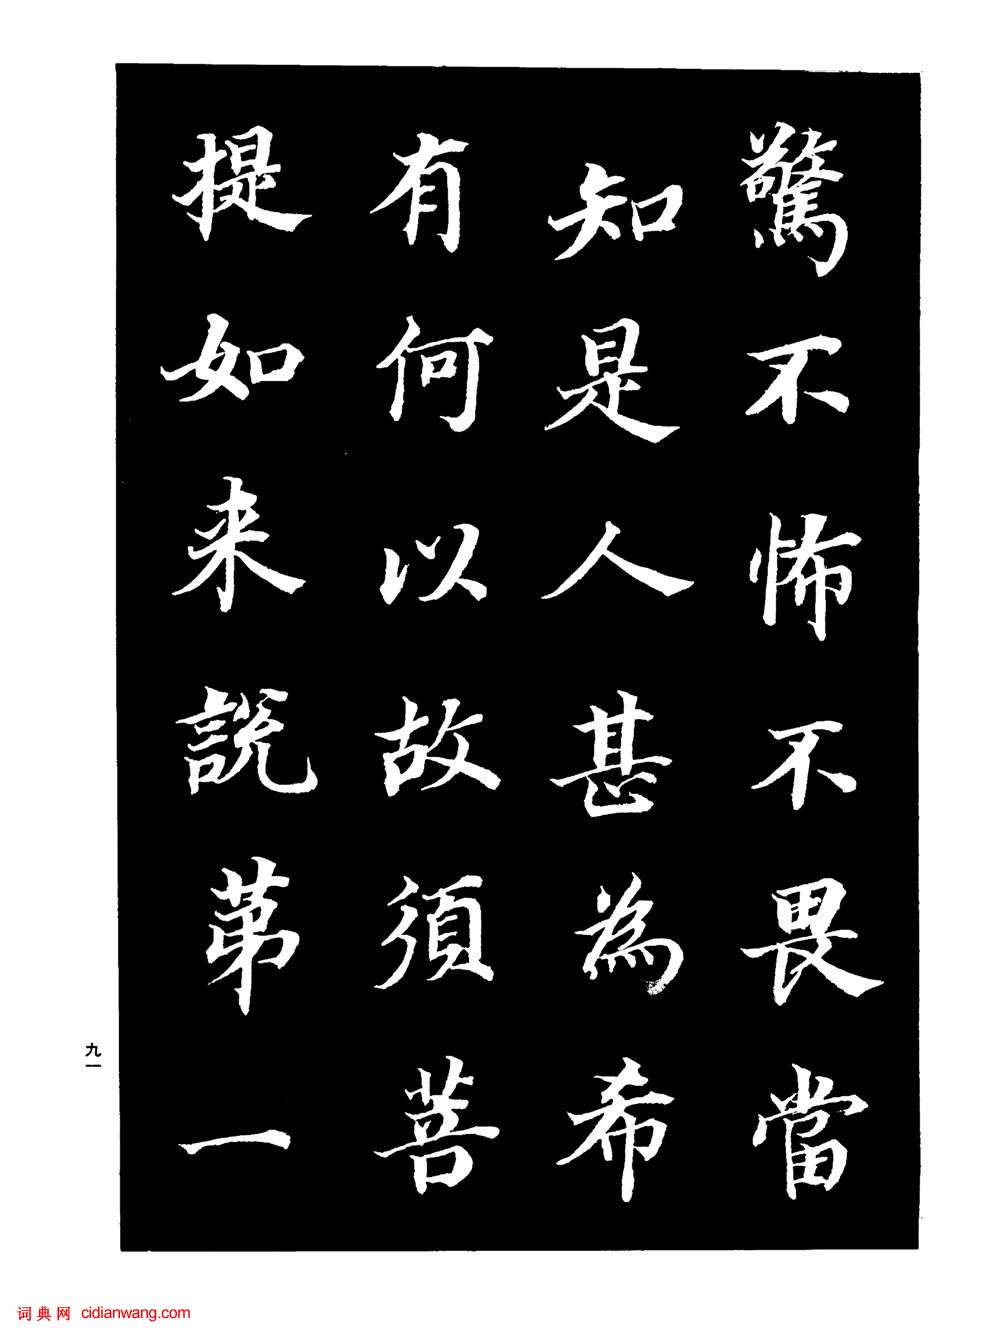 驚不怖不畏當
知是人甚為希
有何以故須菩
提如来說苐一
九一
词典网 cidianwang.com